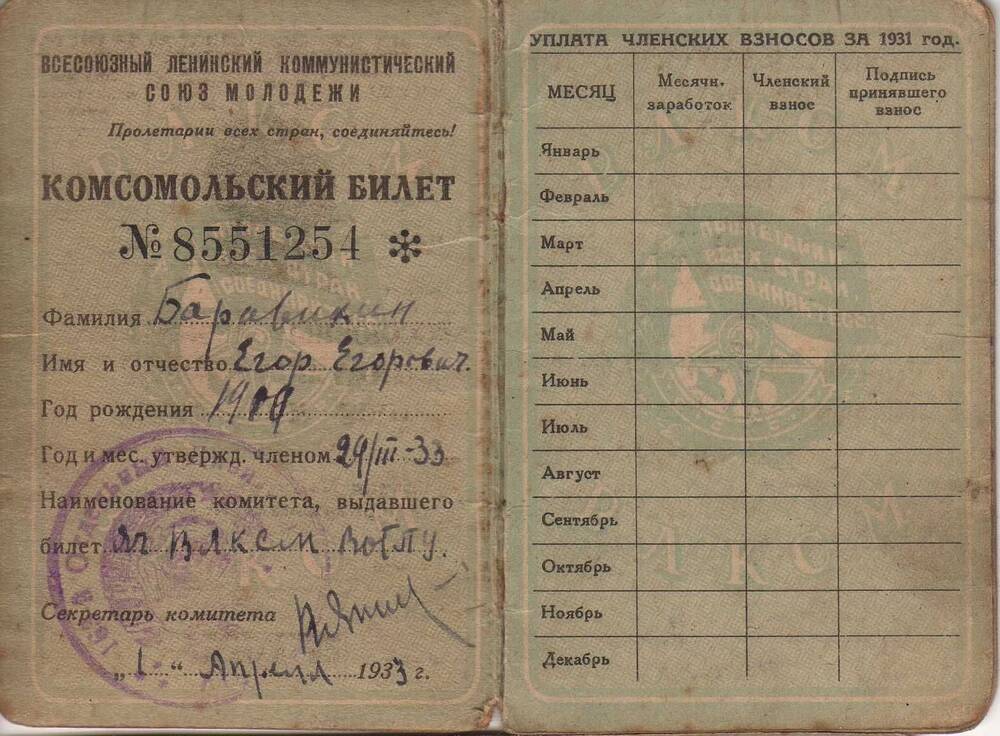 ВСЕСОЮЗНЫЙ ЛЕНИНСКИЙ КОММУНИСТИЧЕСКИЙ
СОЮЗ МОЛОДЕЖИ
Пролетарии всех стран, соединяйтесь!
КОМСОМОЛЬСКИЙ БИЛЕТ
№ 8551254
Фамилия Боровикин
Имя и отчество Егор Егорович.
Год рождения
Год и мес. утвержд. членом 29/III-33
Наименование комитета, выдавшего
билет ВЛКСМ
Секретарь комитета
„1“ Апреля 1933 г.
УПЛАТА ЧЛЕНСКИХ ВЗНОСОВ ЗА 1931 год.
МЕСЯЦ Месячн. заработок Членский взнос Подпись принявшего взнос
Январь
Февраль
Март
Апрель
Май
Июнь
Июль
Август
Сентябрь
Октябрь
Ноябрь
Декабрь